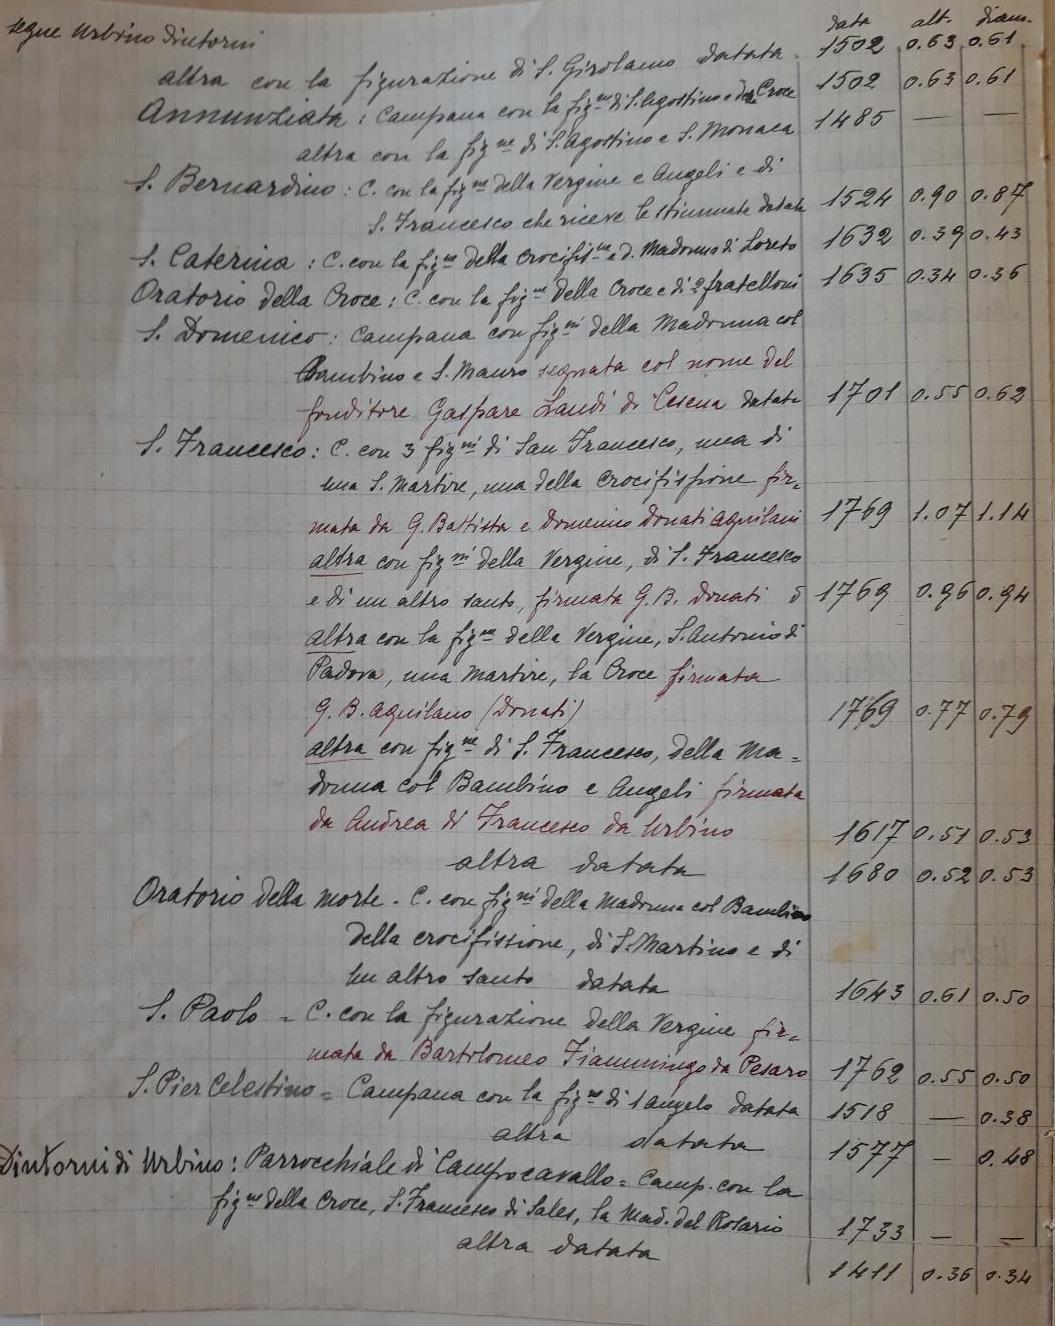 segue Urbino dintorni data alt. diam.
altra con la figurazione di S. Girolamo datata 1502 0.63 0.61
Annunziata: Campana con la fig.ne di S. Agostino e della Croce 1502 0.63 0.61
altra con la fig.ne di S. Agostino e S. Monaca 1485 — —
S. Bernardino: C. con la fig.ne della Vergine e Angeli e di
S. Francesco che riceve le stimmate datata 1524 0.90 0.87
S. Caterina: C. con la fig.ne della Crocifis.ne e d. Madonna di Loreto 1632 0.39 0.43
Oratorio della Croce: C. con la fig.ne della Croce e di 2 fratelloni 1635 0.34 0.36
S. Domenico: Campana con fig.ni della Madonna col
Bambino e S. Mauro segnata col nome del
fonditore Gaspare Landi di Cesena datata 1701 0.55 0.62
S. Francesco: C. con 3 fig.ni di San Francesco, una di
una S. Martire, una della Crocifissione fir=
mata da G. Battista e Domenico Donati Aquilani 1769 1.07 1.14
altra con fig.ni della Vergine, di S. Francesco
e di un altro santo, firmata G. B. Donati 1769 0.96 0.94
altra con la fig.ne della Vergine, S. Antonio di
Padova, una Martire, la Croce firmata
G. B. Aquilano (Donati) 1769 0.77 0.79
altra con fig.ne di S. Francesco, della Ma=
donna col Bambino e Angeli firmata
da Andrea di Francesco da Urbino 1617 0.51 0.53
altra datata 1680 0.52 0.53
Oratorio della Morte - C. con fig.ni della Madonna col Bambino
della crocifissione, di S. Martino e di
un altro santo datata 1643 0.61 0.50
S. Paolo = C. con la figurazione della Vergine fir=
mata da Bartolomeo Fiammingo da Pesaro 1762 0.55 0.50
S. Pier Celestino = Campana con la fig.ne di 1 angelo datata 1518 — 0.38
altra datata 1577 — 0.48
Dintorni di Urbino: Parrocchiale di Campocavallo = Camp. con la
fig.ne della Croce, S. Francesco di Sales, la Mad. del Rosario 1733 — —
altra datata 1411 0.36 0.34